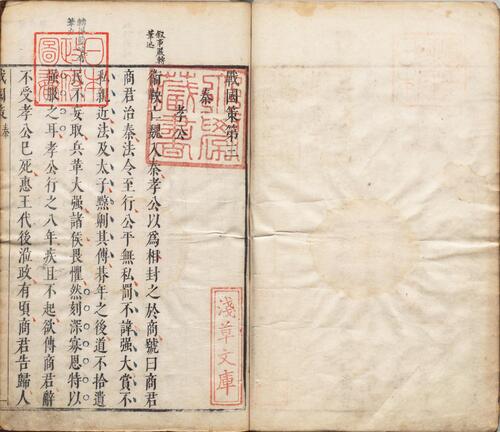 戰國策第三
秦
孝公
衞鞅亡魏入秦孝公以爲相封之於商號曰商君
商君治秦法令至行公平無私罰不諱强大賞不
私親近法及太子黥劓其傅朞年之後道不拾遺
民不妄取兵革大强諸侯畏懼然刻深寡恩特以
强服之耳孝公行之八年疾且不起欲傳商君辭
不受孝公已死惠王代後涖政有頃商君告歸人
戰國策 秦
淺草文庫
日本
圖書